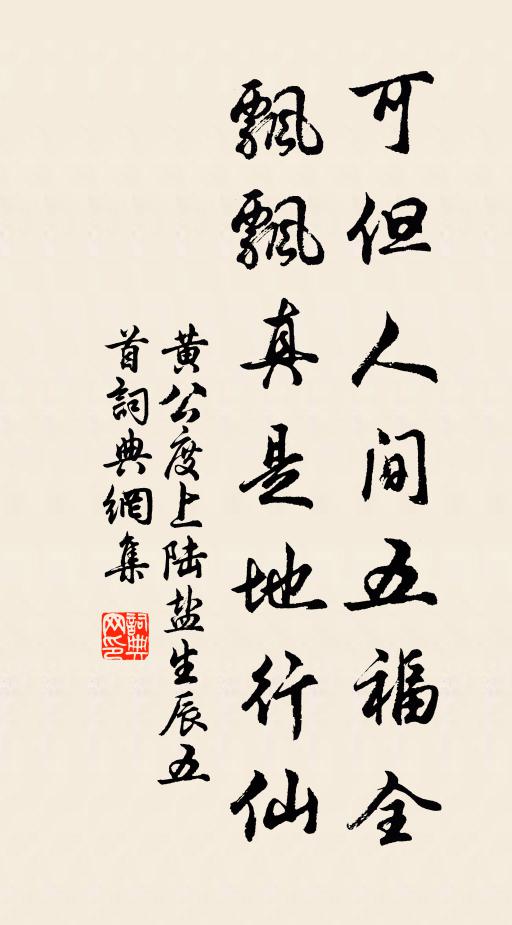 可但人间五福全
飘飘真是地行仙
黄公度上陆盐生辰五
首詞典網集
詞典网印